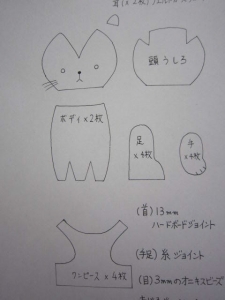 耳(×2枚)
頭うしろ
ボディ×2枚
足
×4枚
手
×4枚
(首)13mm
ハードボードジョイント
(手足)糸ジョイント
ワンピース×4枚
(目)3mmのオニキスビーズ